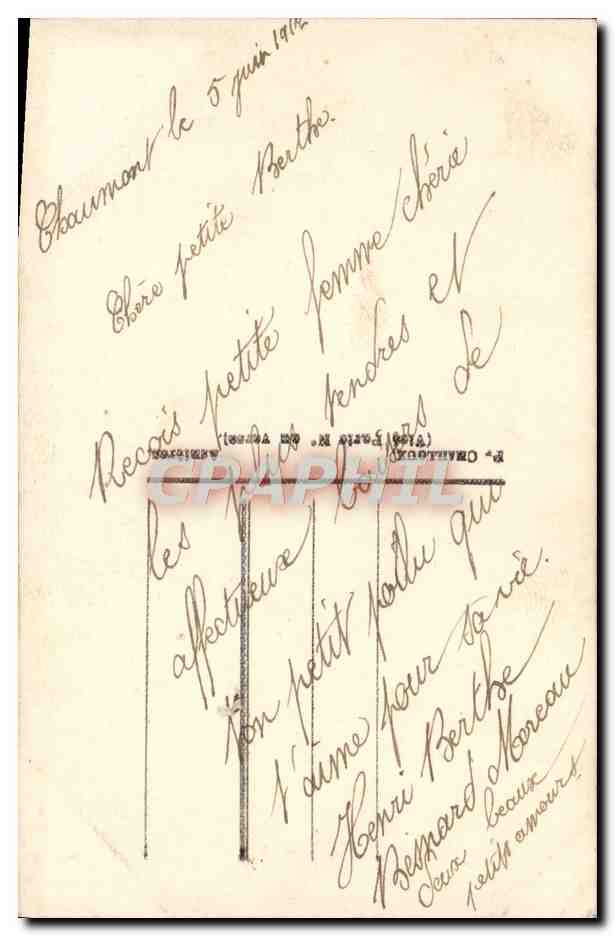 Chaumont le 5 juin 1917
Chère petite Berthe.
Recois petite femme chérie
les plus tendres et
affectueux baisers de
ton petit poilu qui
t'aime pour sa vie.
Henri Berthe
Besnard Moreau
deux beaux
petits amours.
P. CHAILLOUX, Asnières
(Visé Paris N° au verso)
CPAPHIL